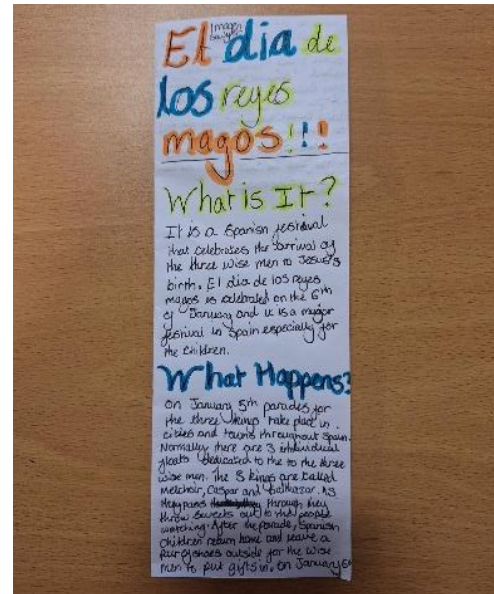 Imogen
El dia de
los reyes
magos!!!
What is It?
It is a Spanish festival
that celebrates the arrival of
the three wise men to Jesus's
birth. El dia de los reyes
magos is celebrated on the 6th
of January and it is a major
festival in Spain especially for
the children.
What Happens?
On January 5th parades for
the three kings take place in
cities and towns throughout Spain.
Normally there are 3 individual
floats dedicated to the to the three
wise men. The 3 kings are called
Melchoir, Caspar and Balthazar. As
they pass through they
throw sweets out to the people
watching. After the parade, Spanish
children return home and leave a
pair of shoes outside for the wise
men to put gifts in. On January 6th